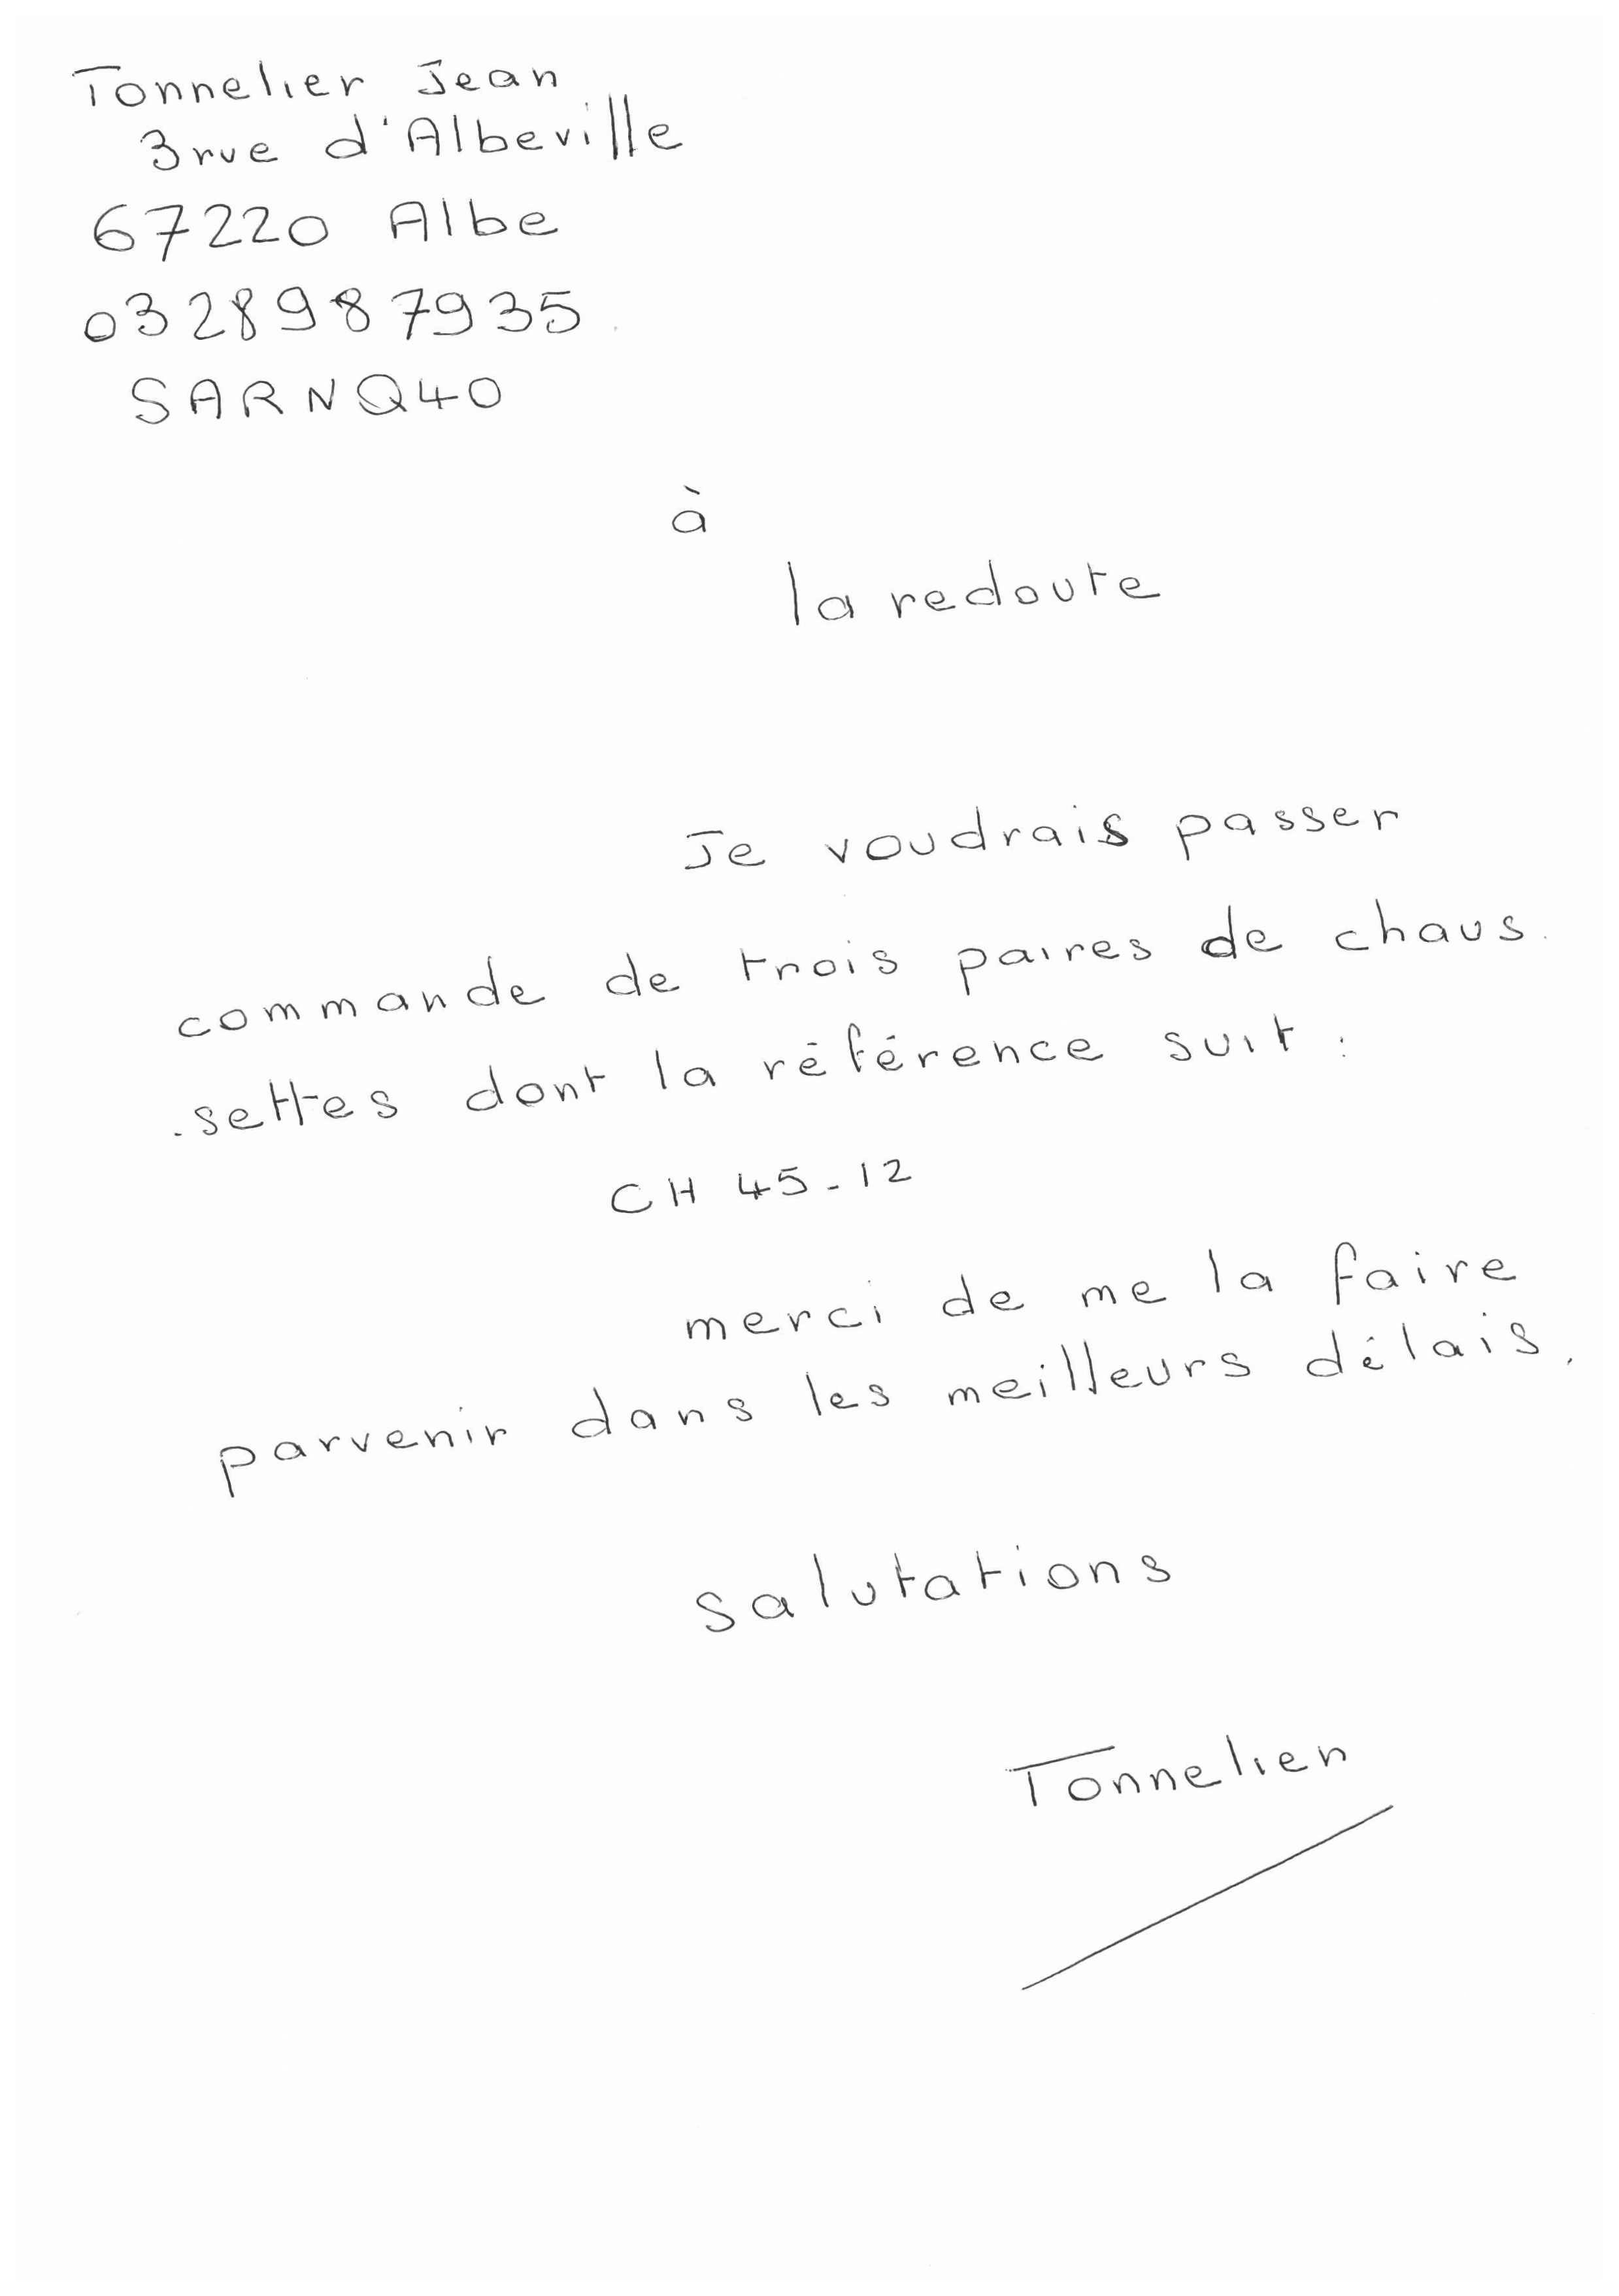 Tonnelier Jean
3 rue d'Albeville
67220 Albe
0328987935
SARNQ40
à
la redoute
Je voudrais passer
commande de trois paires de chaus-
-settes dont la référence suit :
CH 45-12
merci de me la faire
parvenir dans les meilleurs délais.
Salutations
Tonnelier